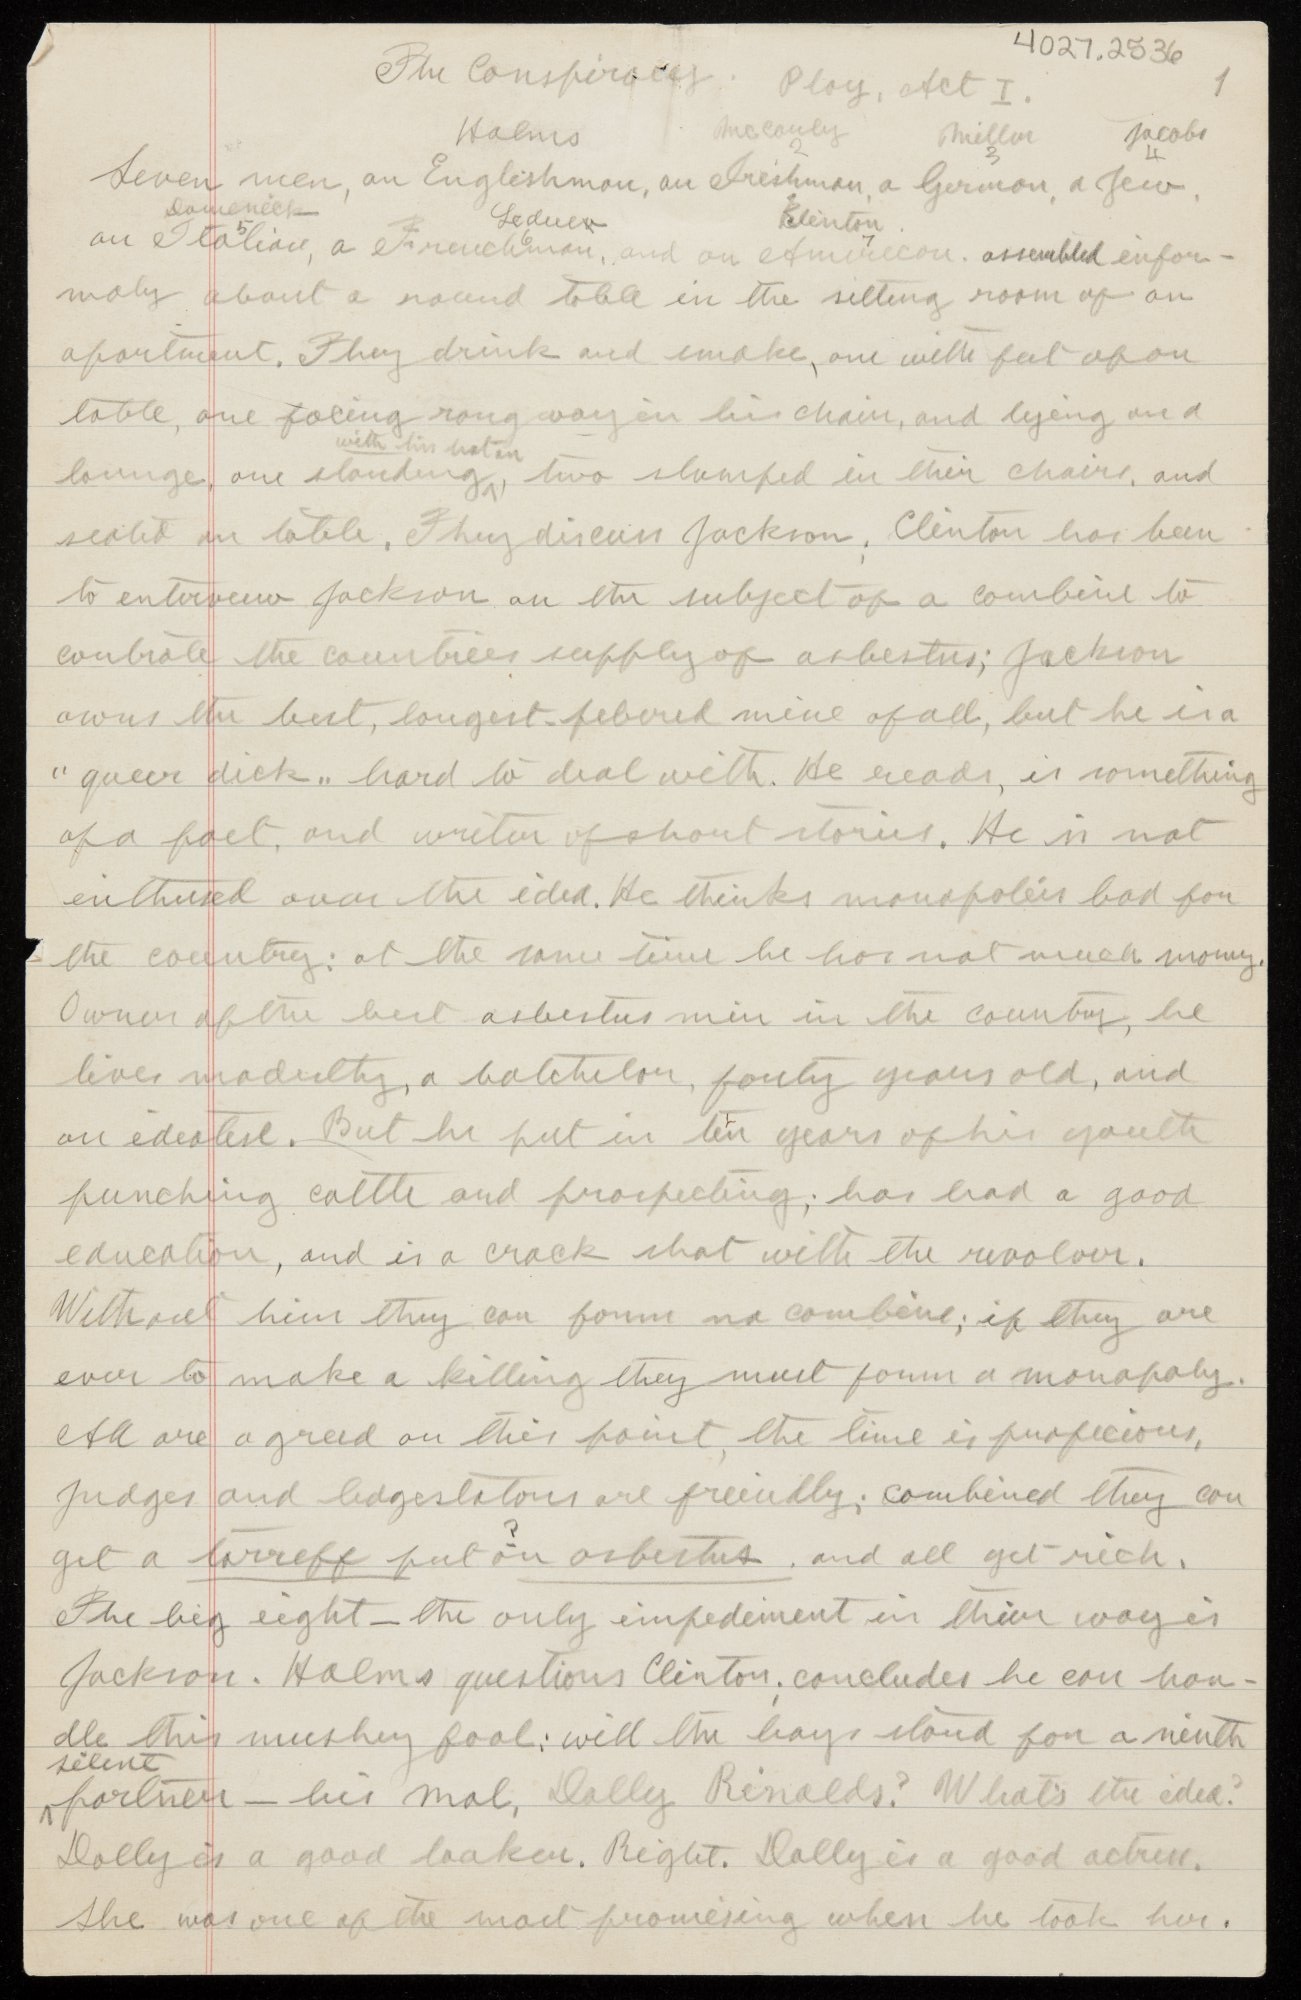 4027.2536
The Conspiracy. Play, Act I. 1
Holms McCauly Miller Jacobs
2 3 4
Seven men, an Englishman, an Irishman, a German, a Jew,
Domenick Leduex Clinton
5 6 7
an Italian, a Frenchman, and an American. assembled infor-
maly about a round table in the sitting room of an
apartment. They drink and smoke, one with feet up on
table, one facing rong way in his chair, and lyeing on a
with his hat on
lounge, one standing ^, two slumped in their chairs, and
seated on table. They discuss Jackson, Clinton has been
to enterveuw Jackson on the subject of a combine to
controle the countries supply of asbestus; Jackson
owns the best, longest febered mine of all, but he is a
"queer dick" hard to deal with. He reads, is something
of a poet, and writer of short stories. He is not
enthused over the idea. He thinks monopoleis bad for
the country: at the same time he has not much money.
Owner of the best asbestus min in the country, he
lives modestly, a batchelor, forty years old, and
an idealest. But he put in ten years of his youth
punching cattle and prospecting; has had a good
education, and is a crack shot with the revolver.
Without him they can form no combine; if they are
ever to make a killing they must form a monopoly.
All are agreed on this point, the time is propicious,
Judges and ledgeslators are freindly; combined they can
?
get a tarreff put on asbestus. and all get rich.
The big eight - the only impediment in their way is
Jackson. Holms questions Clinton; concludes he can han-
dle this mushey fool: will the boys stand for a ninth
silent
^ partner - his mol, Dolly Rinalds? What's the idea?
Dolly is a good looker. Right. Dolly is a good actress.
She was one of the most promising when he took her.